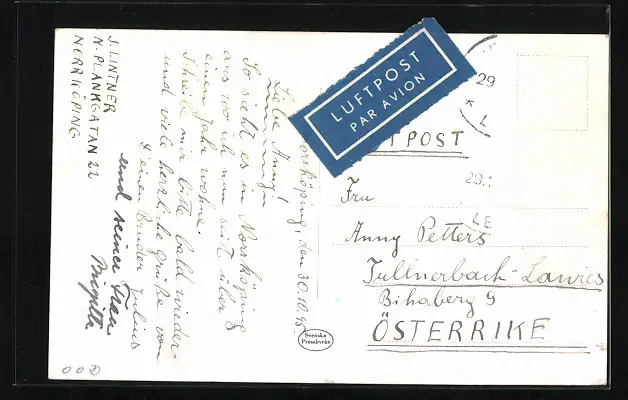 J. LINTNER
N. PLANKGATAN 22
NORRKÖPING
Norrköping, den 30.10.48.
Liebe Anny!
So sieht es in Norrköping
aus wo ich nun seit über
einem Jahr wohne.
Schreib mir bitte bald wieder
und viele herzliche Grüße von
Deinem Bruder Julius
und seiner Frau
Birgitta
LUFTPOST
PAR AVION
LUFTPOST
Fru
Anny Petters
Tullnerbach-Lawies
Bihaberg 9
ÖSTERRIKE
Svenska
Pressbyrån
29
K L
29.
LE
00